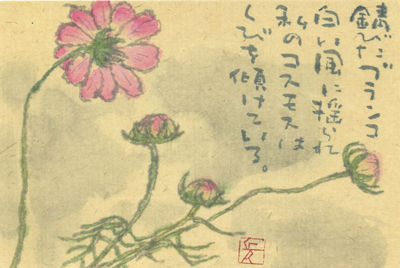 錆びたブランコ
白い風に揺られ
私のコスモスは
くびを傾けている。